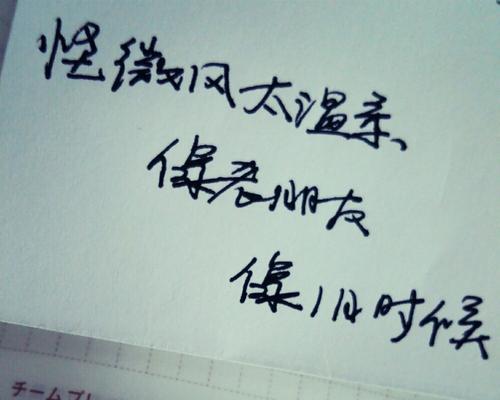 怪微风太温柔、
像老朋友
像旧时候
チームプ